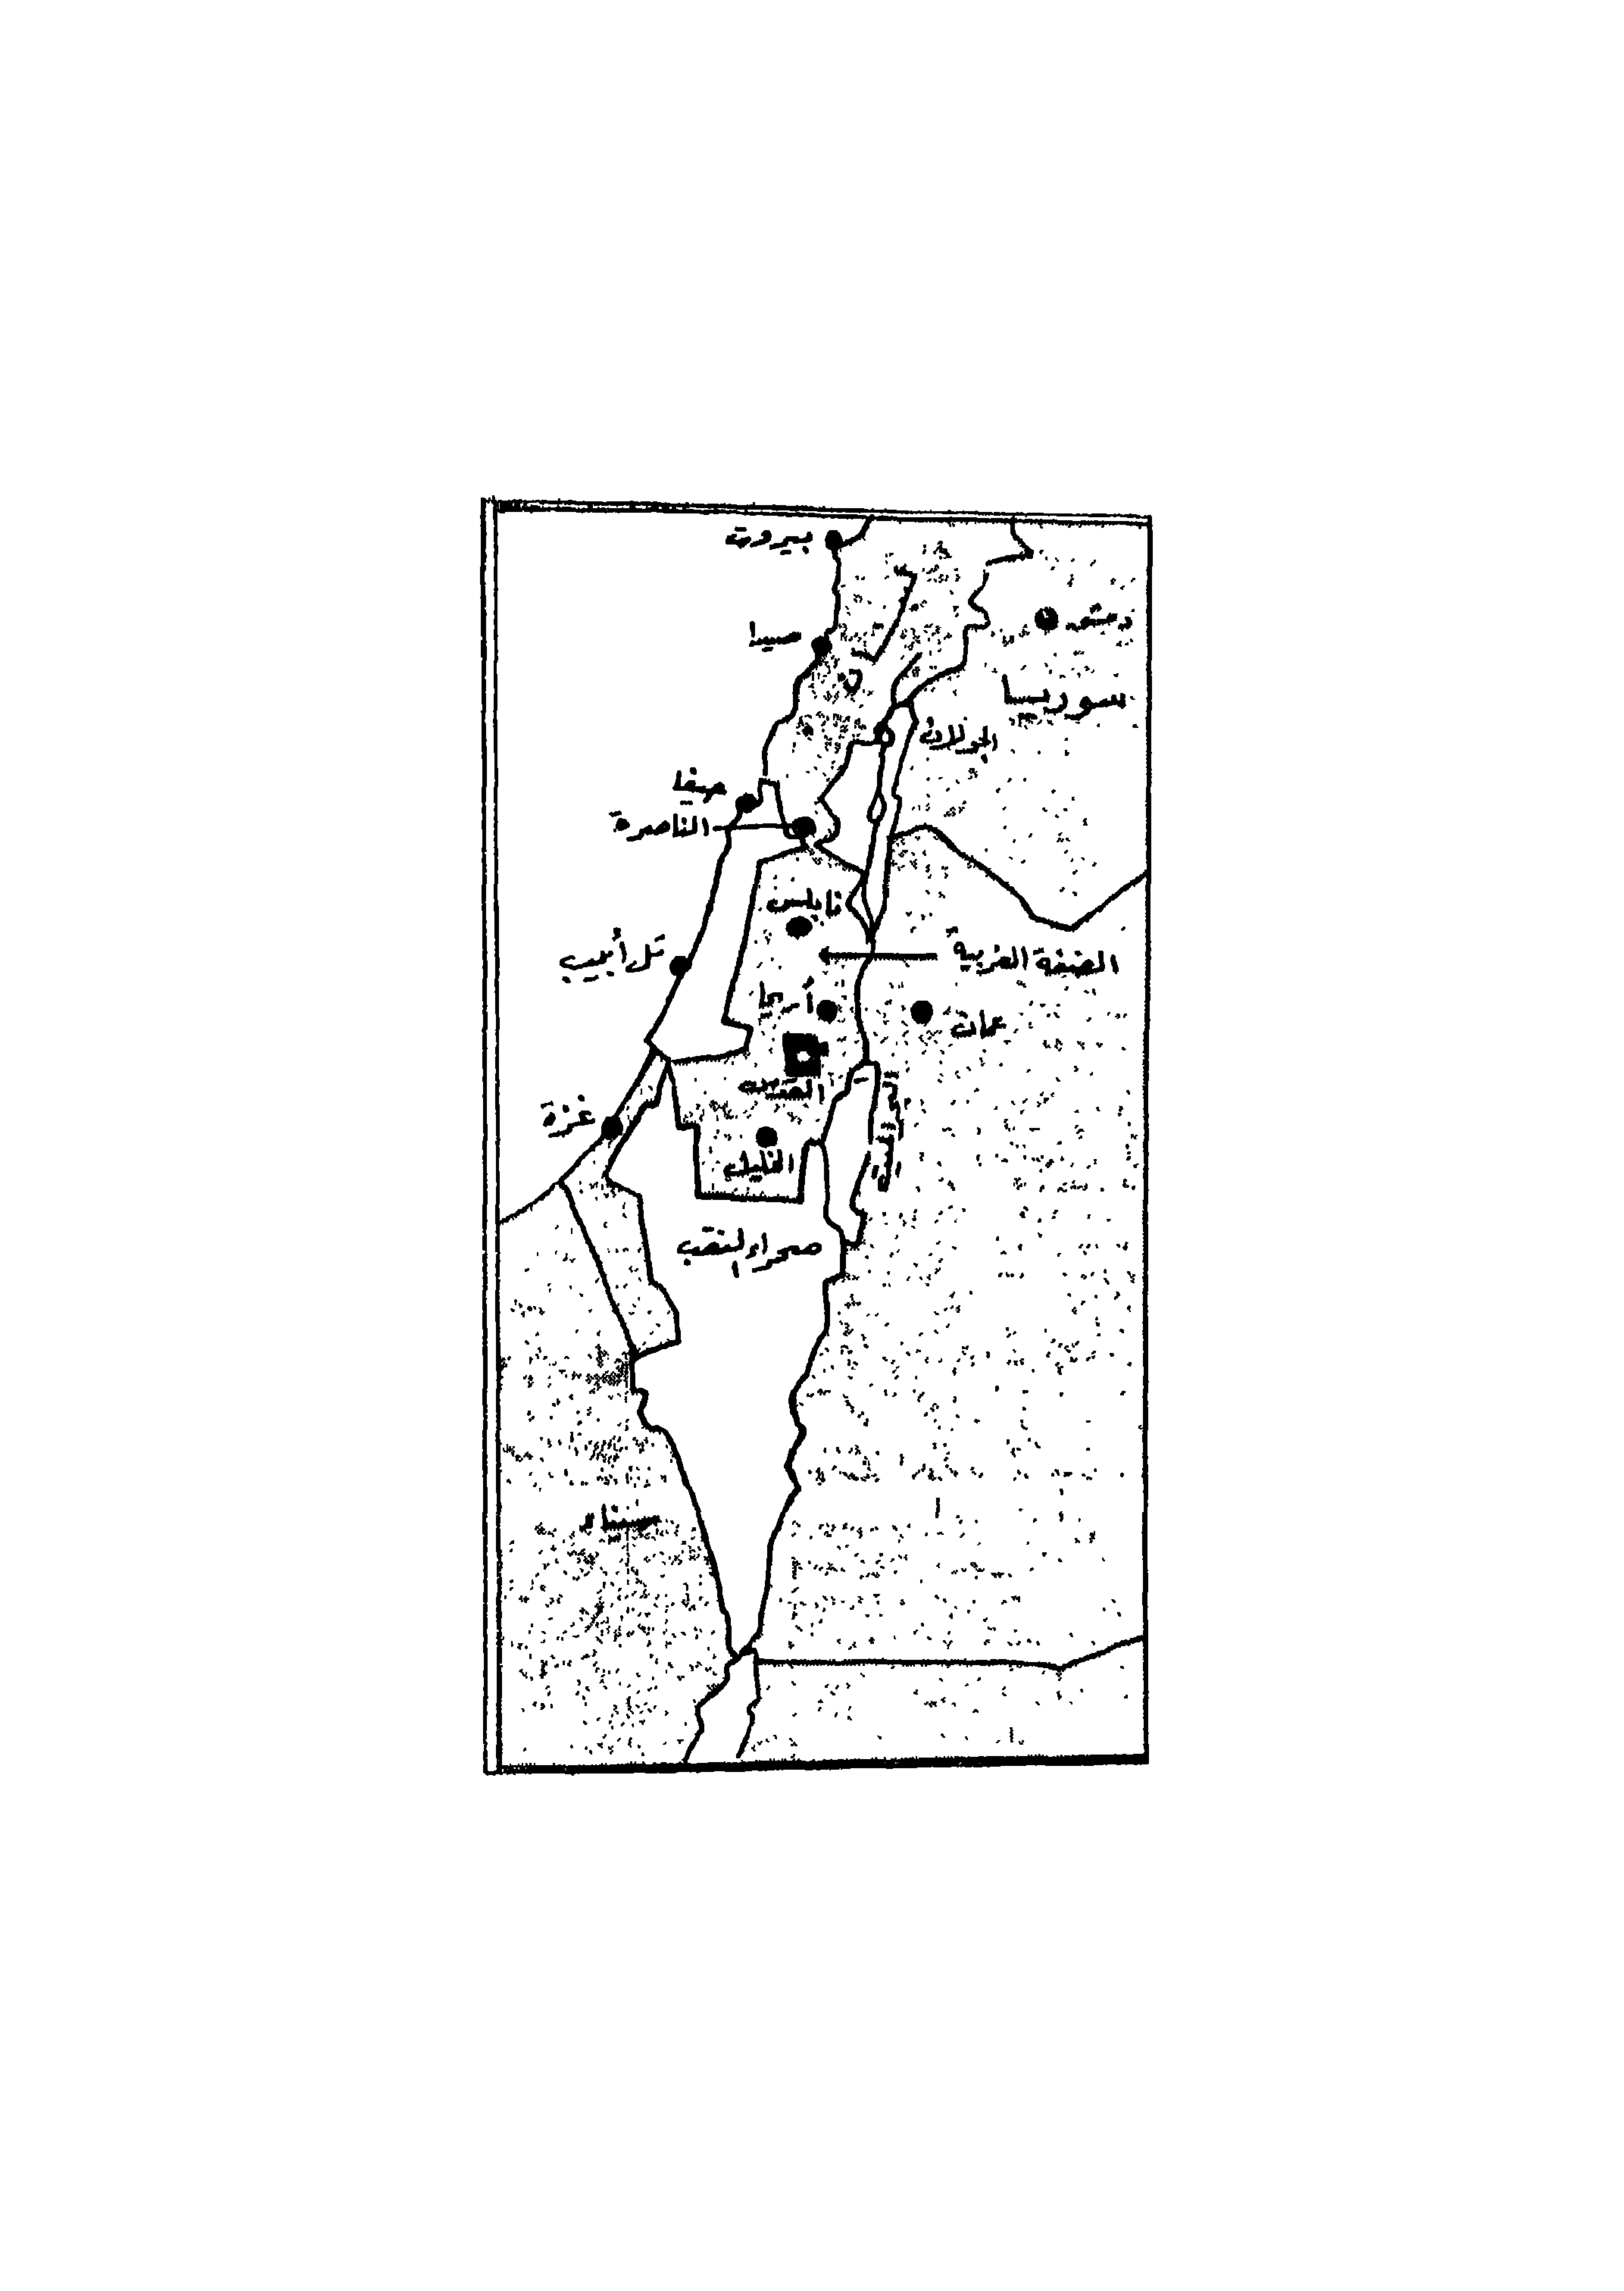 بيروت
دمشق
صيدا
سوريا
الجولان
حيفا
الناصرة
نابلس
تل أبيب
الضفة الغربية
أريحا
عمان
القدس
غزة
الخليل
صحراء النقب
سيناء